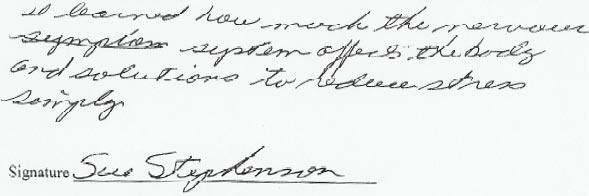 I learned how much the nervous
sympton system affects the body
and solutions to reduce stress
simply
Signature Sue Stephenson